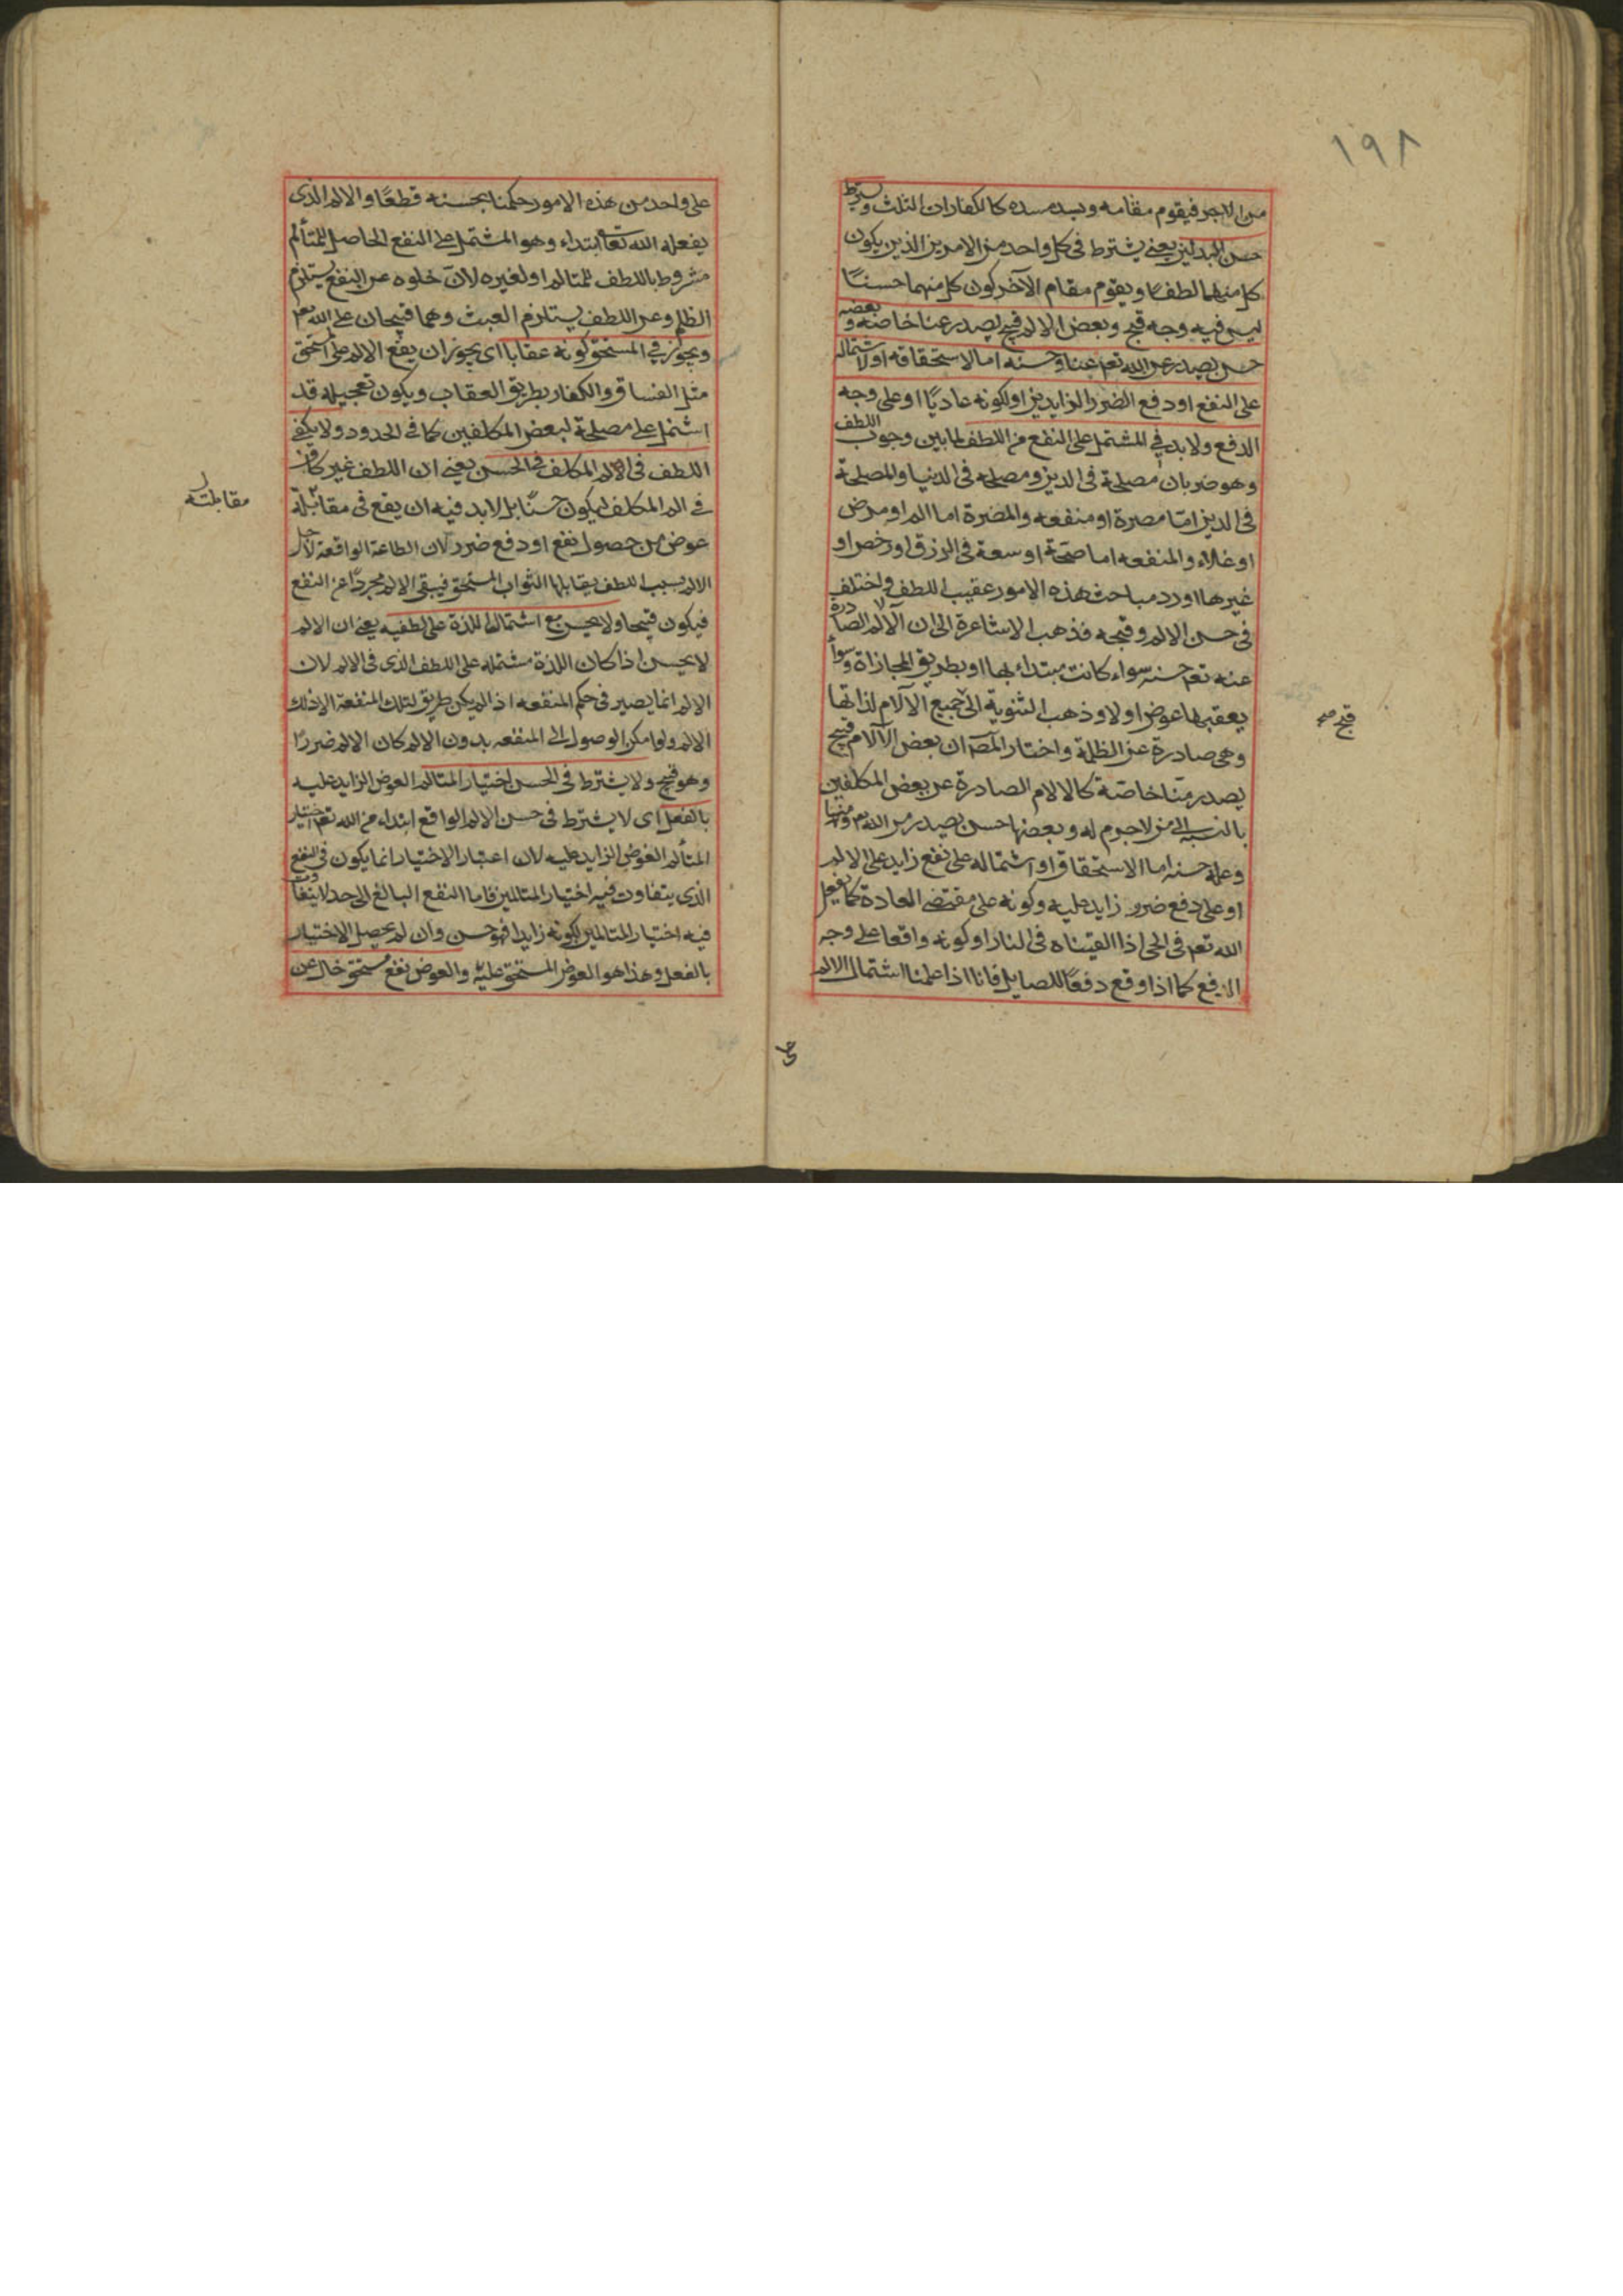 ١٩٨
من الاخر فيقوم مقامه ويسد مسده كالكفارات الثلث ويشترط
حسن البدلين يعني يشترط في كل واحد من الامرين الذين يكون
كل منهما لطفا ويقوم مقام الآخر كون كل منهما حسنًا
ليس فيه وجه قبح وبعض الالم قبيح يصدر عنا خاصة وبعضه
حسن يصدر عن الله تعم وعنا وحسنه اما لاستحقاقه او لاشتماله
على النفع او دفع الضرر الزايدين او لكونه عاديًا او على وجه
الدفع ولا بد في المشتمل على النفع من اللطف لما بين وجوب اللطف
وهو ضربان مصلحة في الدين ومصلحة في الدنيا والمصلحة
في الدين امّا مضرة او منفعه والمضرة اما الم او مرض
او غلاء والمنفعه اما صحّة او سعة في الرزق او رخص او
غيرها اورد مباحث هذه الامور عقيب اللطف واختلف
في حسن الالم وقبحه فذهب الاشاعرة الى ان الآلام الصادرة
عنه تعم حسنه سواء كانت مبتداء بها او بطريق المجازاة وسواء
يعقبها عوض اولا وذهب الثنوية الى جميع الآلام لذاتها
قبح صح
وهى صادرة عن الظلمة واختار المصّ ان بعض الآلام قبيح
يصدر منّا خاصّة كالالام الصادرة عن بعض المكلفين
بالنسبه الى من لا جرم له وبعضها حسن يصدر من الله تعم ومنها
وعلة حسنه اما الاستحقاق او اشتماله على نفع زايد على الالم
او على دفع ضرر زايد عليه وكونه على مقتضى العادة كما يفعل
الله تعم في الحى اذا القيناه في النار او كونه واقعا على وجه
الدفع كما اذا وقع دفعًا للصايل فانا اذا علمنا اشتمال الالم
على واحد من هذه الامور حكمنا بحسنه قطعًا والالم الذى
يفعله الله تعا ابتداء وهو المشتمل على النفع الحاصل للمتألم
مشروط باللطف للمتالم او لغيره لانّ خلوه عن النفع يستلزم
الظلم وعن اللطف يستلزم العبث وهما قبيحان على الله تعم
ويجوز في المستحق كونه عقابا اى يجوز ان يقع الالم على المستحق
مثل الفساق والكفار بطريق العقاب ويكون تعجيله قد
اشتمل على مصلحة لبعض المكلفين كما في الحدود ولا يكفى
اللطف في الم المكلف في الحسن يعني ان اللطف غير كاف
في الم المكلف ليكون حسنًا بل لا بد فيه ان يقع في مقابلة
مقابلته
عوض من حصول نفع او دفع ضرر لان الطاعة الواقعة لاجل
الالم بسبب اللطف يقابلها الثواب المستحق فيبقى الالم مجردًا عن النفع
فيكون قبيحا ولا يحسن مع اشتمال اللذة على لطفيه يعني ان الالم
لا يحسن اذا كان اللذة مشتمله على اللطف الذى في الالم لان
الالم انما يصير في حكم المنفعه اذا لم يكن طريق لتلك المنفعة الا ذلك
الالم ولو امكن الوصول الى المنفعه بدون الالم كان الالم ضررًا
وهو قبيح ولا يشترط في الحسن اختيار المتالم العوض الزايد عليه
بالفعل اى لا يشترط في حسن الالم الواقع ابتداء من الله تعم اختيار
المتألم العوض الزايد عليه لان اعتبار الاختيار انما يكون في النفع
الذى يتفاوت فيه اختيار المتالمين فاما النفع البالغ الى حد لا يتفاوت
فيه اختيار المتالمين لكونه زايدا فهو حسن وان لم يحصل الاختيار
بالفعل وهذا هو العوض المستحق عليه والعوض نفع مستحق خال عن